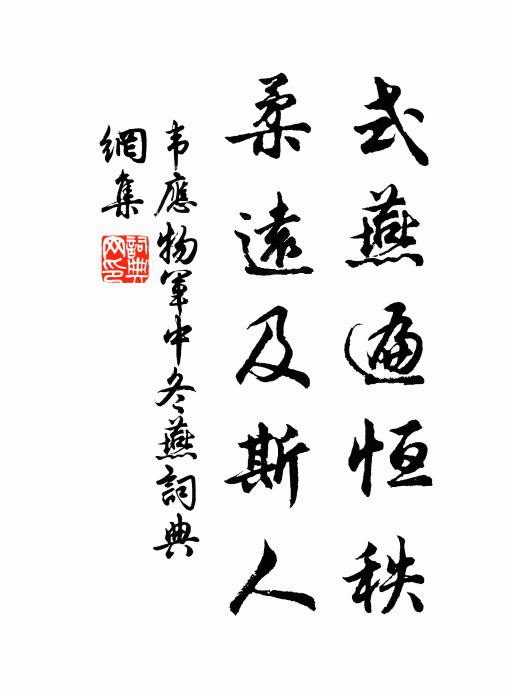 式燕遍恒秩
柔遠及斯人
韦應物軍中冬燕詞典
網集
詞典
网印